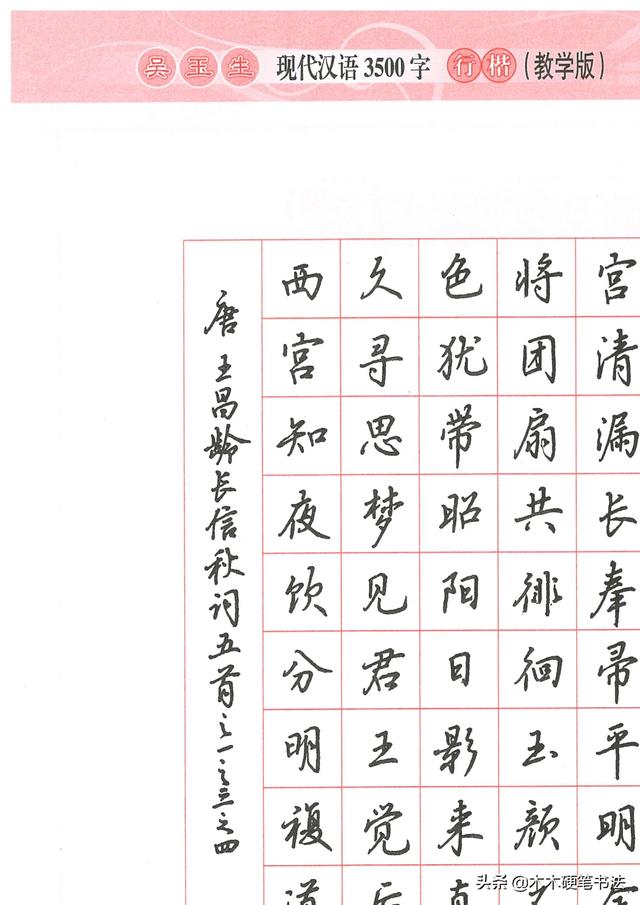 吴玉生 现代汉语3500字 行楷(教学版)
宫清漏长奉帚平明
将团扇共徘徊玉颜
色犹带昭阳日影来
久寻思梦见君王觉
西宫知夜饮分明複
唐王昌龄长信秋词五首之一之三之四
头条@木木硬笔书法